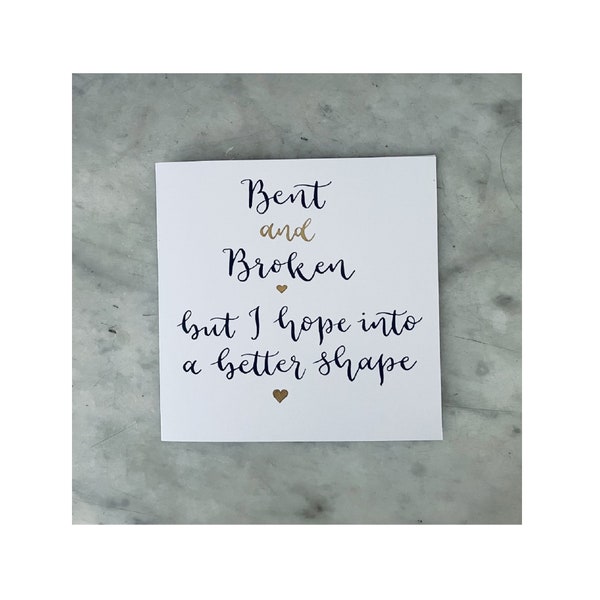 Bent
and
Broken
but I hope into
a better shape